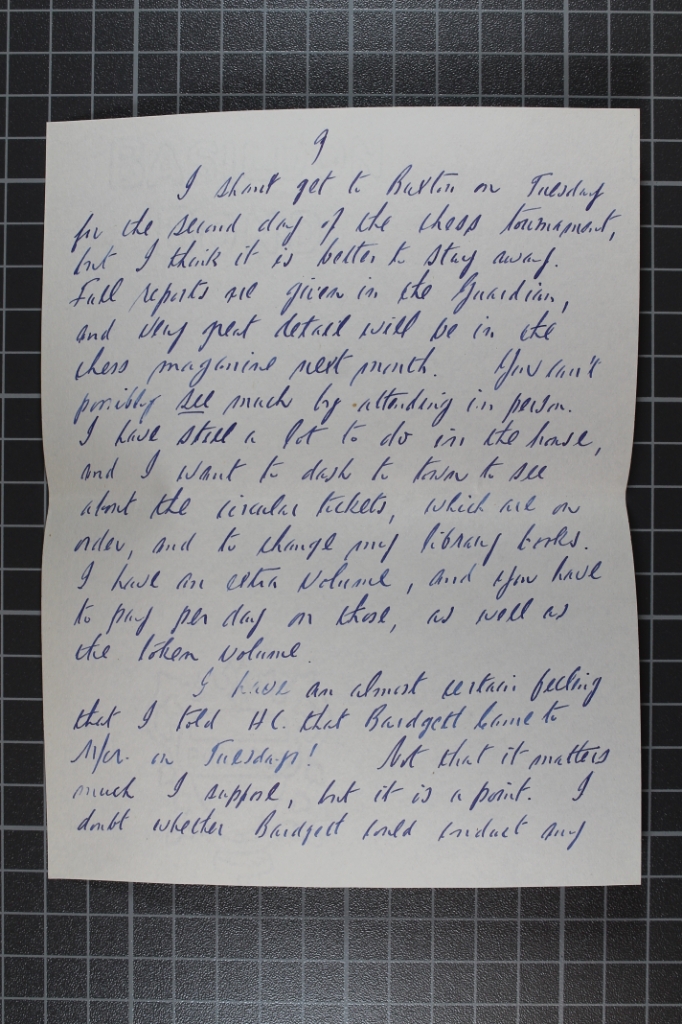 9
I shant get to Buxton on Tuesday
for the second day of the chess tournament,
but I think it is better to stay away.
Full reports are given in the Guardian,
and very great detail will be in the
chess magazine next month. You can't
possibly see much by attending in person.
I have still a lot to do in the house,
and I want to dash to town to see
about the circular tickets, which are on
order, and to change my library books.
I have an extra volume, and you have
to pay per day on those, as well as
the token volume.
I have an almost certain feeling
that I told HC. that Bardgett came to
M/cr. on Tuesdays! Not that it matters
much I suppose, but it is a point. I
doubt whether Bardgett could conduct any